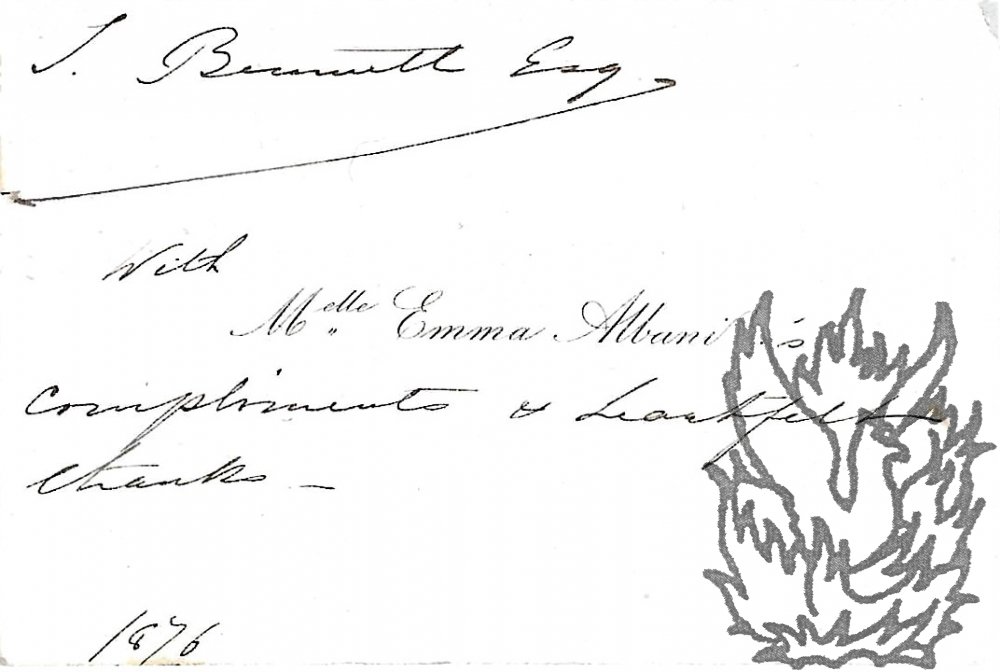 J. Bennett Esq
With
Melle Emma Albani's
compliments & heartfelt
thanks —
1876